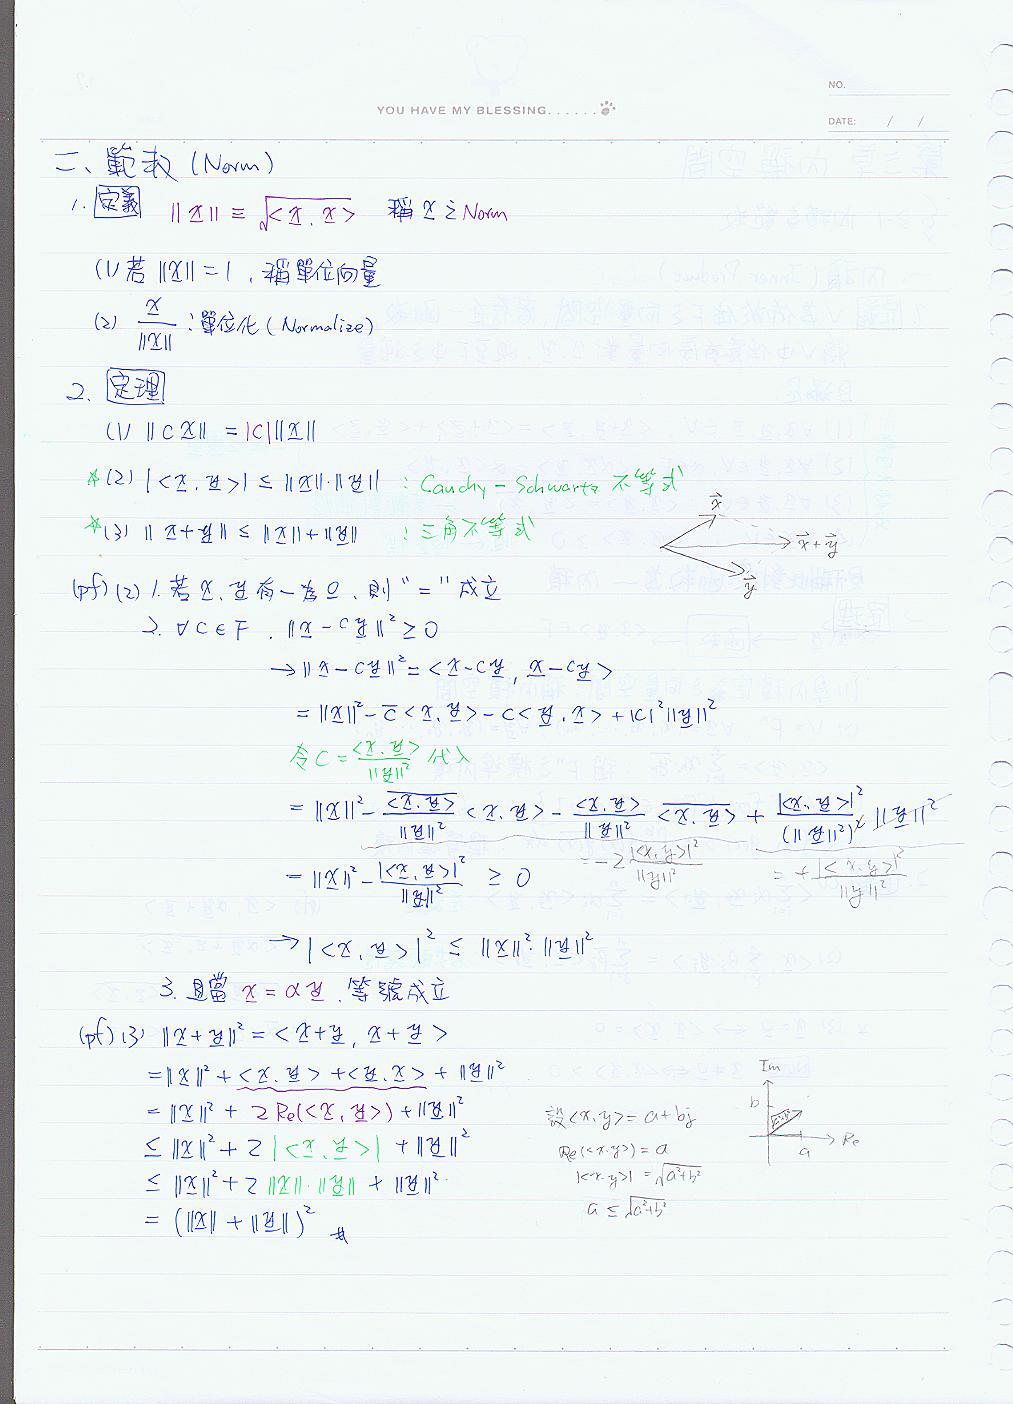 NO.
YOU HAVE MY BLESSING......
DATE: / /
二、範數 (Norm)
1. 定義 ||x|| ≡ √<x, x> 稱 x 之 Norm
(1) 若 ||x|| = 1, 稱單位向量
(2) x/||x|| : 單位化 (Normalize)
2. 定理
(1) ||cx|| = |c| ||x||
☆(2) |<x, y>| ≤ ||x||·||y|| : Cauchy-Schwartz 不等式
☆(3) ||x+y|| ≤ ||x||+||y|| : 三角不等式
x⃗
x⃗+y⃗
y⃗
(pf) (2) 1. 若 x, y 有一為 0, 則 "=" 成立
2. ∀c∈F, ||x-cy||² ≥ 0
→ ||x-cy||² = <x-cy, x-cy>
= ||x||² - c̅<x, y> - c<y, x> + |c|²||y||²
令 c = <x, y>/||y||² 代入
= ||x||² - (\overline{<x, y>}/||y||²) <x, y> - (<x, y>/||y||²) \overline{<x, y>} + (|<x, y>|²/(||y||²)²) ||y||²
= -2|<x, y>|²/||y||² = +|<x, y>|²/||y||²
= ||x||² - |<x, y>|²/||y||² ≥ 0
→ |<x, y>|² ≤ ||x||²·||y||²
3. 且當 x = αy, 等號成立
(pf) (3) ||x+y||² = <x+y, x+y>
= ||x||² + <x, y> + <y, x> + ||y||²
= ||x||² + 2Re(<x, y>) + ||y||²
≤ ||x||² + 2|<x, y>| + ||y||²
≤ ||x||² + 2||x||·||y|| + ||y||²
= (||x|| + ||y||)² #
設 <x, y> = a + bj
Re(<x, y>) = a
|<x, y>| = √(a²+b²)
a ≤ √(a²+b²)
Im
b
Re
a